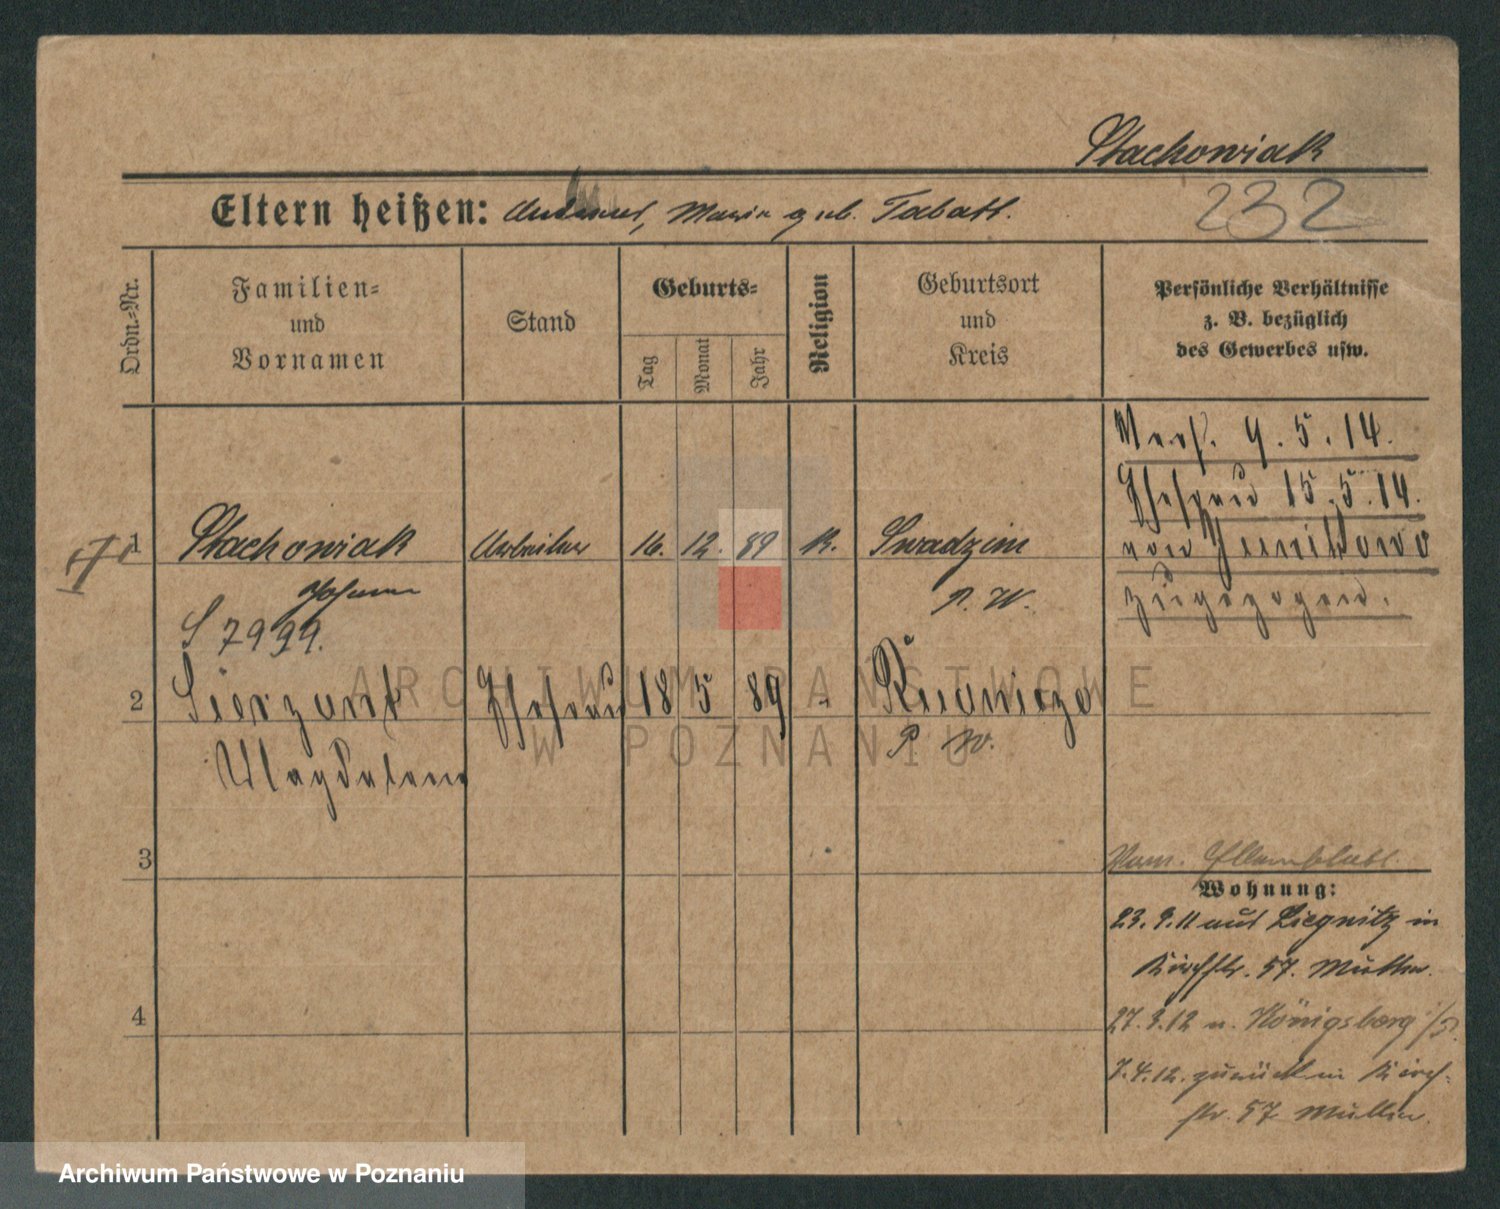 Stachowiak
232
Eltern heißen: Andreas, Maria geb. Tabatt.
Ordn.-Nr.
Familien-
und
Vornamen
Stand
Geburts-
Tag
Monat
Jahr
Religion
Geburtsort
und
Kreis
Persönliche Verhältnisse
z. B. bezüglich
des Gewerbes usw.
Verh. 9.5.14.
Ehefrau 15.5.14.
von Junikowo
zugezogen.
1 Stachowiak Arbeiter 16. 12. 89 K. Swadzim
Johann P. W.
S 7999.
2 Sierzant Ehefrau 18 5 89 " Rudnicze
Magdalena P. W.
3
4
Wohnung:
23.9.11 aus Liegnitz in
Kirchstr. 57. Mutter.
27.3.12 n. Königsberg i/P.
7.4.12. zurück in Kirch-
str. 57 Mutter.
ARCHIWUM PAŃSTWOWE
W POZNANIU
Archiwum Państwowe w Poznaniu